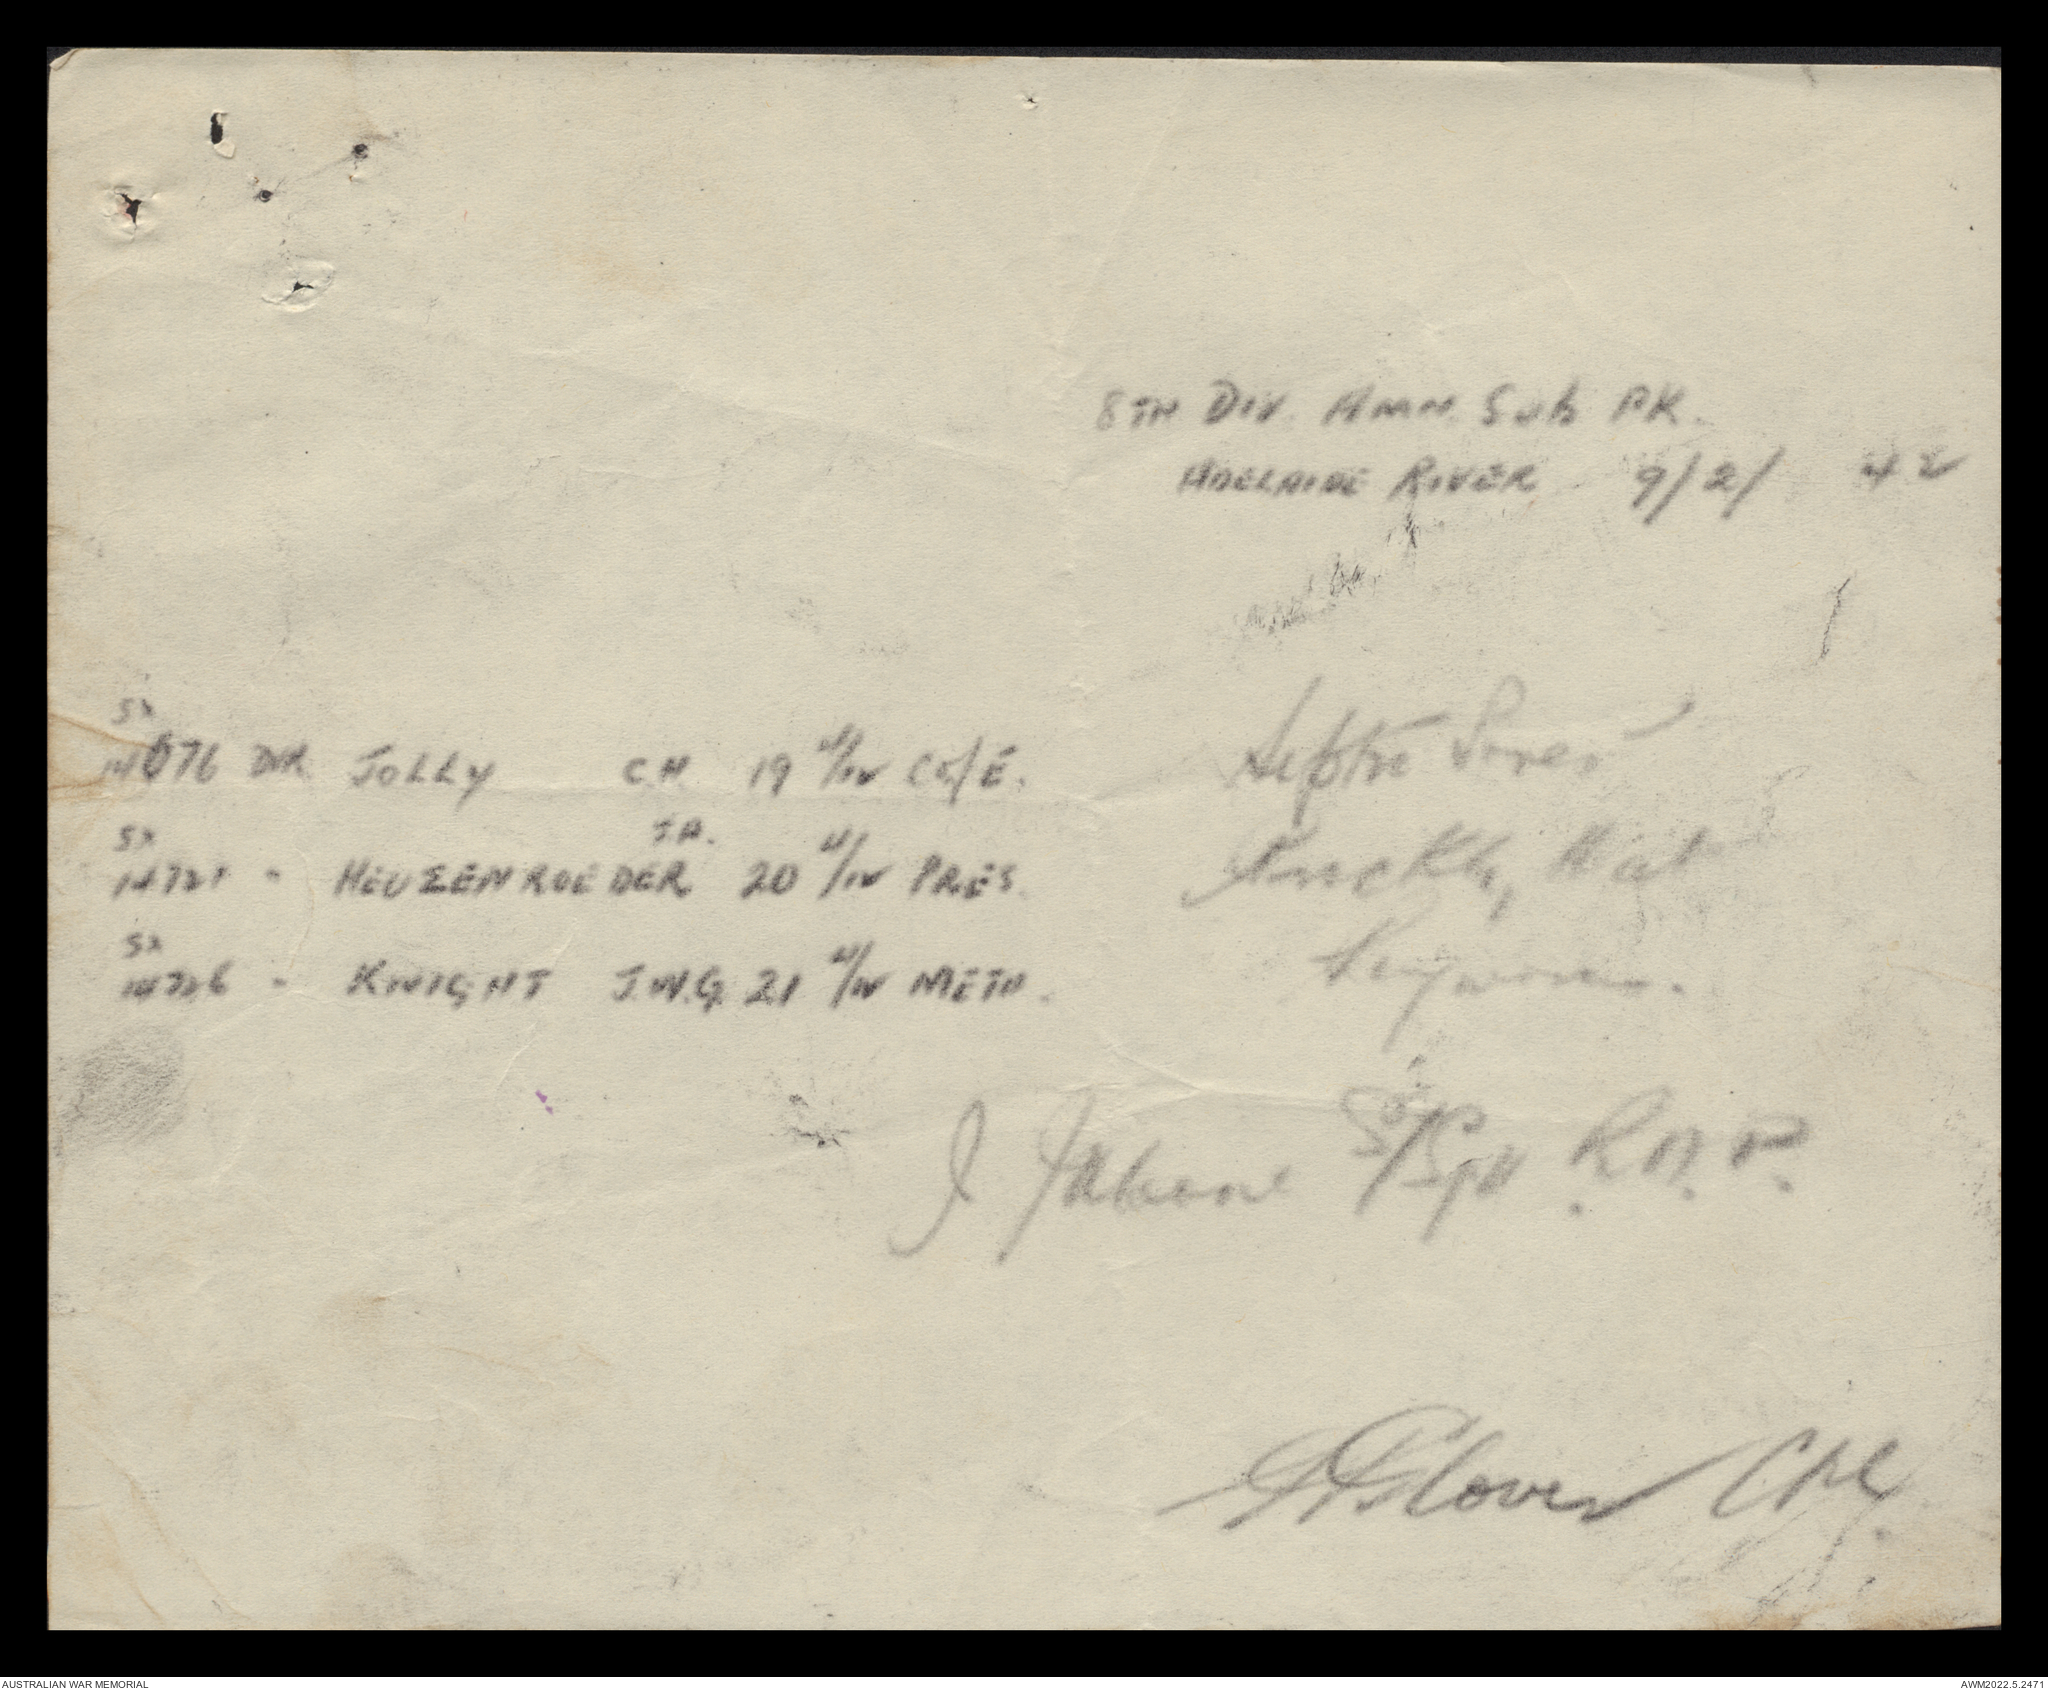 8TH DIV. AMN. Sub PK.
ADELAIDE RIVER 9/2/ 42
SX
14076 DVR JOLLY C.H. 19 U/W C of E.
SX J.A.
14721 - HEUZENROEDER 20 U/W PRES.
SX
14726 - KNIGHT J.W.G. 21 U/W METH.
Puckle
Seymour.
J S/Sgt R.A.P.
Glover CPL.
AUSTRALIAN WAR MEMORIAL
AWM2022.5.2471